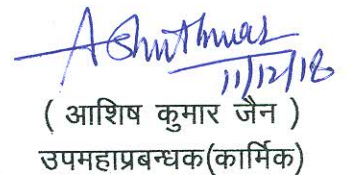 11/12/18
( आशिष कुमार जैन )
उपमहाप्रबन्धक(कार्मिक)